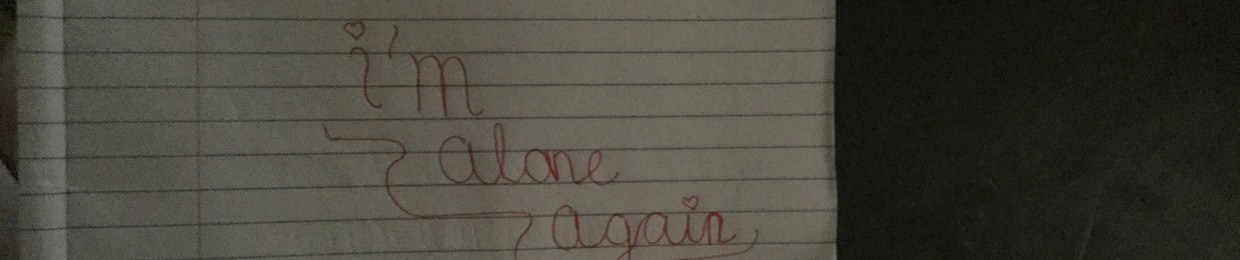 i'm
alone
again